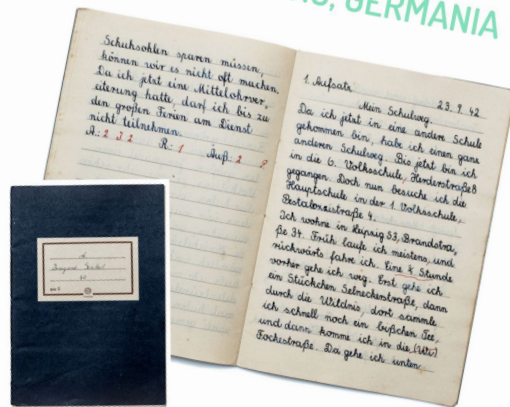 , GERMANIA
Schuhsohlen sparen müssen,
können wir es nicht oft machen.
Da ich jetzt eine Mittelohrver,
eiterung hatte, darf ich bis zu
den großen Ferien am Dienst
nicht teilnehmen.
A: 2 3 2 R: 1 Auß: 2
1. Aufsatz
Mein Schulweg. 23. 9. 42
Da ich jetzt in eine andere Schule
gekommen bin, habe ich einen ganz
anderen Schulweg. Bis jetzt bin ich
in die 6. Volksschule, Herderstraße 8
gegangen. Doch nun besuche ich die
Hauptschule in der 1. Volksschule,
Pestalozzistraße 4.
Ich wohne in Leipzig S3, Brandstra,
ße 34. Früh laufe ich meistens, und
rückwärts fahre ich. Eine ¾ Stunde
vorher gehe ich weg. Erst gehe ich
ein Stückchen Selneckerstraße, dann
durch die Wildnis, dort sammle
ich schnell noch ein bißchen Tee,
und dann komme ich in die
Fockestraße. Da gehe ich unten